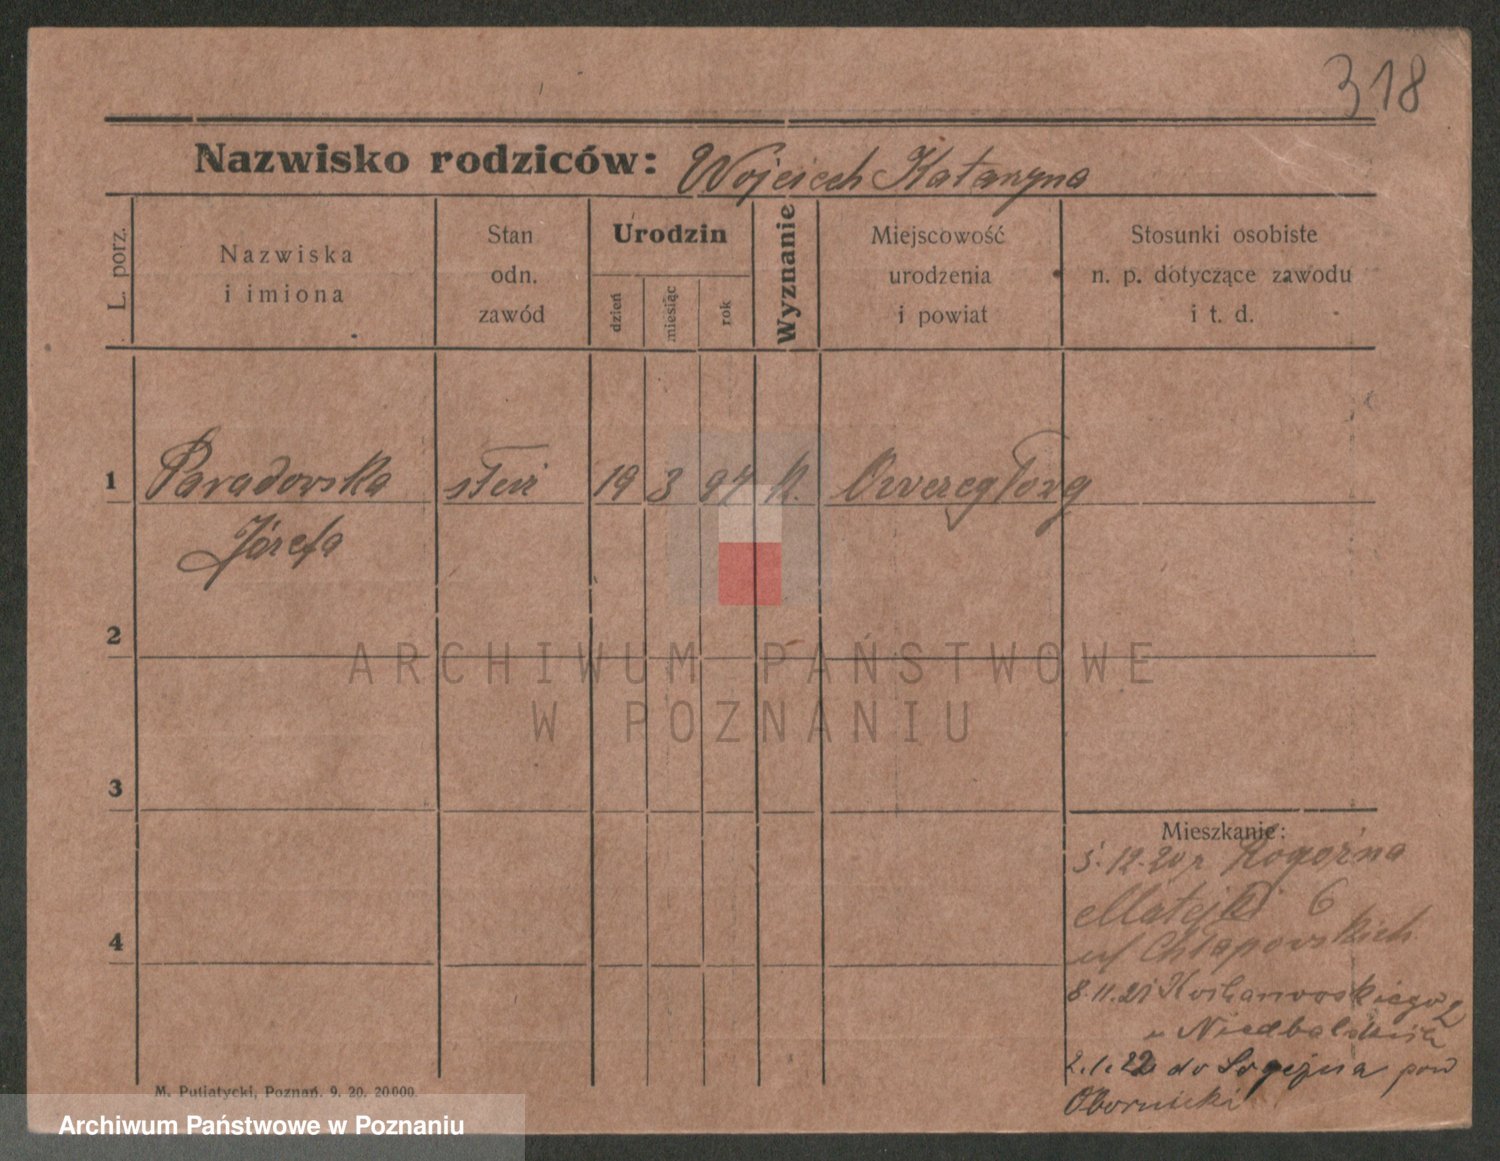 318
Nazwisko rodziców: Wojciech Katarzyna
L. porz.
Nazwiska
i imiona
Stan
odn.
zawód
Urodzin
dzień
miesiąc
rok
Wyznanie
Miejscowość
urodzenia
i powiat
Stosunki osobiste
n. p. dotyczące zawodu
i t. d.
1 Paradowska służ 19 3 94 k.
Józefa
2
3
4
Mieszkanie:
5.12.20 r Rogoźna
Matejki 6
u Chłapowskich
8.11.21 Kochanowskiego 2
u Niedbalskich
2.1.22 do pow
Obornicki
M. Putiatycki, Poznań. 9. 20. 20000.
ARCHIWUM PAŃSTWOWE
W POZNANIU
Archiwum Państwowe w Poznaniu